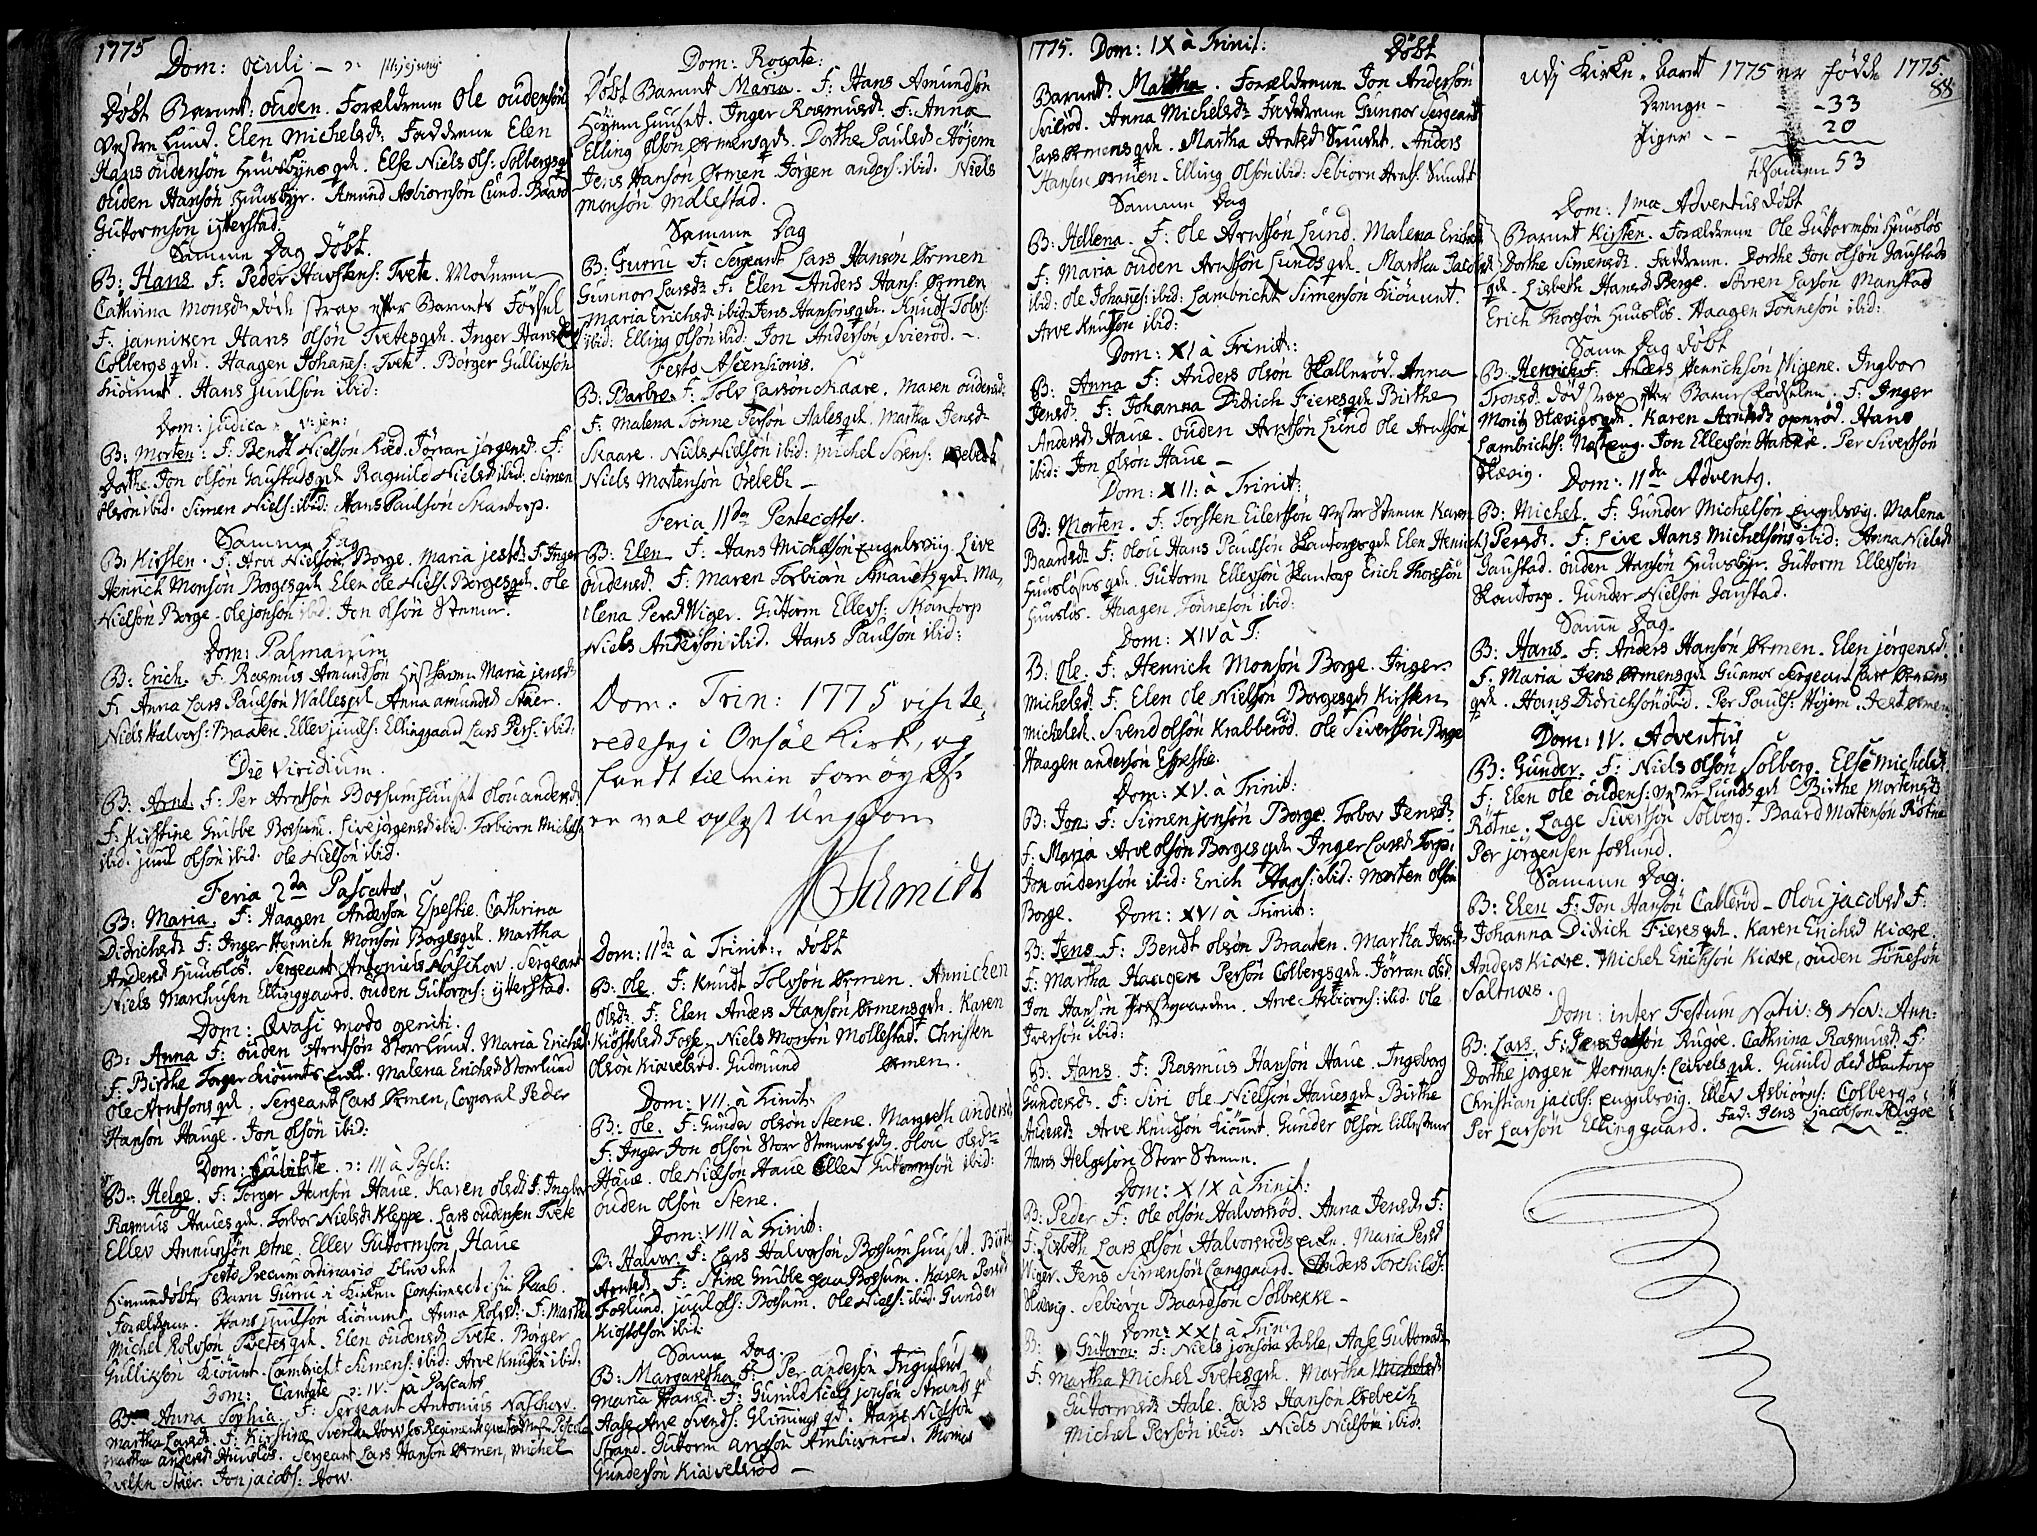 1775
Dom: oculi
Döbt Barnet: ouden. Forældrene Ole oudensön
Vestre Lund. Elen Michelsd: Faddrene Elen
Hans oudensön Huusbyes qde. Else Niels ols: Solbergs qd
ouden Hansön Huusbye. Amund Asbiørnsön Lund. Baard
Guttormsön ijterstad.
Samme Dag Döbt.
B: Hans F: Peder Haustens: Tvete. Moderen
Cathrina Monsd: döde strax efter Barnets Födsel
F. janniken Hans olsön Tvetes qde. Inger Hansd
Colbergs qde. Haagen Johanns: Tvete. Börger Gullixsön
Kiönnet. Hans juulsön ibid:
Dom: judica
B: Morten. F: Bendt Nielsön Röd. Jörran jörgensd: F:
Dorthe Jon olsön Gaustads qde Ragnild Nielsd ibid. Simen
olsön ibid. Simen Niels: ibid: Hans Paulsön Skantorp.
Samme Dag
B: Kirsten. F: Arve Nielsön Borge. Maria jensd: F: Inger
Henrich Monsön Borges qde. Elen ole Niels: Borges qde. ole
Nielsön Borge. ole jonsön ibid. Jon olsön Steene.
Dom: Palmarum
B: Erich. F. Rasmus Amundsön Maria jensd
F. Anna Lars Paulsön Walles qde Anna amundsd Skaer.
Niels Halvors: Braaten. Ellev juuls: Ellinggaard Lars Pers: ibid:
Die Viridium.
B: Arnt. F: Per Arntsön Bossumhuuset olou andersd:
F. Kirstine Grubbe Bossum. Live jörgensd ibid. Torbiörn Michels:
ibid. juul olsön ibid. ole Nielsön ibid.
Feria 2da Pascatos
B: Maria. F: Haagen Andersön Espeslie. Cathrina
Didrichsd: F: Inger Henrich Monsön Borges qde. Martha
Andersd Huuslös. Sergeant Antonius Naschow. Sergeant
Niels Marchussen Ellinggaard. ouden Guttorms: ijterstad.
Dom: Qvasi modo geniti.
B: Anna F: ouden Arntsön Storrlund. Maria Erichsd
F. Birthe Torger Kiönnets Malena Erichsd Storrlund
Ole Arntsöns qde. Sergeant Lars Ørmen, Corporal Peder
Hansön Hauge. Jon olsön ibid:
Dom: jubilate ɔ: III à Pasch:
B: Helge. F: Torger Hansön Haue. Karen olsd: F: Ingbor
Rasmus Haues qde. Torbor Nielsd Kleppe. Lars oudensen Tvete
Ellev Annunsön Øtne. Ellev Guttormsön Haue
Festo Precum ordinario blev det
hiemmedöbte Barn Gurru i Kirken Confirmert i sin Daab.
Forældrene. Hans juulsön Kiönnet. Anna Rolvsd: F: Martha
Michel Rolvsön Tvetes qde. Elen oudensd Tvete. Börger
Gullixsön Kiönnet. Lambricht Simens: ibid: Arve Knudsön ibid:
Dom: Cantate ɔ: IV. à Pascatos
B: Anna Sophia. F: Sergeant Antonius Naschow.
Martha Larsd: F. Kirstine
Martha andersd Huuslös. Sergeant Lars Hansön Ørmen, Michel
Skaer. Jon jacobs: How.
Dom: Rogate:
Döbt Barnet Maria. F: Hans Amundsön
Höyemhuuset. Inger Rasmusd: F: Anna
Elling olsön Ørmens qde. Dorthe Paulsd Höjem
Jens Hansön Ørmen Jörgen anders: ibid. Niels
Monsön Möllestad.
Samme Dag
B: Gurru F: Sergeant Lars Hansön Ørmen
Gunnor Larsd: F: Elen Anders Hans: Ørmen
Maria Erichsd: ibid: Jens Hansöns qde. Knudt Tolvs:
ibid: Elling olsön ibid: Jon Andersön Svieröd.
Festo Ascensionis.
B: Barbre F: Tolv Larsön Skaare. Maren oudensd:
F: Malena Tönne Persön Aales qde. Martha Jensd:
Skaare. Niels Nielsön ibid: Michel Sörens: Örebech
Niels Mortensön Örebech
Feria IIda Pentecostes.
B: Elen F: Hans Michelsön Engelsviig. Live
oudensd: F: Maren Torbiörn Knauets qde. Ma,
lena Persd Wiger. Guttorm Ellevs: Skantorp
Niels Andersön ibid. Hans Paulsön ibid:
Dom. Trin: 1775 visite,
redes jeg i Onsöe Kirk, og
fandt til min fornöyelse
en vel oplyst Ungdom
Schmidt
Dom: IIda à Trinit: döbt
B: Ole. F: Knudt Tolvsön Ørmen. Annichen
olsd: F: Elen Anders Hansön Ørmens qde. Karen
Kiöstelsd Fosse. Niels Monsön Mollestad. Christen
olsön Kiævelsröd. Gudmund Ørmen.
Dom: VII. à Trinit:
B: ole. F: Gunder olsön Steene. Margreth andersd
F: Inger Jon olsön Storr Steenes qde. olou olsd:
Haue. ole Nielsön Haue Ellev Guttormsön ibid:
ouden olsön Stene.
Dom: VIII à Trinit:
B: Halvor. F: Lars Halvorsön Bossumhuuset. Birthe
Arntsd: F: Stine Grubbe paa Bossum. Karen Persd
Foslund. juul ols: Bossum. Ole Niels: ibid. Gunder
Kiöstolsön ibid:
Samme Dag.
B: Margaretha F: Per andersön
Maria Hansd: F: Gunild Niels jonsön Strands qd
Aase Arve övends: Glimmings qd. Hans Nielsön
Strand. Guttorm Ambiörnröd. Thomes
Gundersön Kiævelsröd
1775. Dom: IX à Trinit: Döbt
Barnet Martha. Forældrene Jon Andersön
Svieröd. Anna Michelsd: Faddrene Gunnor Sergeant
Lars Ørmens qde. Martha Arntsd Anders
Hansen Ørmen. Elling olsön ibid: Sebiörn Arnts:
Samme Dag
B: Hellena. F: Ole Arntsön Lund. Malena Erichsd
F: Maria ouden Arntsön Lunds qde. Martha Jacobsd
ibid: ole Johanns: ibid: Lambricht Simensön Kiönnet.
Arve Knudsön ibid:
Dom: XI à Trinit:
B: Anna F: Anders olsön Skalleröd. Anna
Jensd: F: Johanna Didrich Fieres qde Birthe
Andersd Haue. ouden Arntsön Lund Ole Arntsön
ibid: Jon olsön Haue
Dom: XII: à Trinit:
B: Morten. F: Torsten Eilertsön Vester Steene Karen
Baardsd: F: olou Hans Paulsön Skantorps qde Elen Henrich
Huuslöses qde. Guttorm Ellevsön Skantorp Erich Thorsön
Huuslös. Haagen Tönnesön ibid:
Dom: XIV à T:
B: Ole. F: Henrich Monsön Borge. Inger
Michelsd: F: Elen ole Nielsön Borges qde Kirsten
Michelsd. Svend olsön Krabberöd. ole Siversön Borge
Haagen andersön Espeslie.
Dom: XV. à Trinit:
B: Jon. F: Simen jonsön Borge. Torbor Jensd:
F: Maria Arve olsön Borges qde Inger Larsd Torp:
Jon oudensön ibid: Erich Hans: ibid: Morten olsön
Borge. Dom: XVI à Trinit:
B: Jens F: Bendt olsön Braaten. Martha Jensd
F: Martha Haagen Persön Colbergs qde. Jörran olsd
Jon Hansön Præstegaarden. Arve Asbiörns: ibid. Ole
Iversön ibid:
B: Hans. F: Rasmus Hansön Haue. Ingeborg
Gundersd: F: Siri ole Nielsön Haues qde Birthe
Andersd: Arve Knudsön Kiönnt. Gunder olsön lillesteene
Hans Helgesön Storr Steene.
Dom: XIX à Trinit:
B: Peder F: Ole olsön Halvorsröd. Anna Jensd: F:
F: Lisbeth Lars olsön Halvorsröds Maria Persd
Wiger. Jens Simensön Langgaard. Anders Torchilds:
Slævig. Sebiörn Baardsön Solbrekke
Dom: XXI à Trin:
B: Guttorm. F: Niels jonsön Dahle, Aase Guttormsd:
F: Martha Michel Tvetes qde. Martha Michelsd
Guttormsd: Aale. Lars Hansön Örebech
Michel Persön ibid: Niels Nielsön ibid:
88
Udj Kirke-Aaret 1775 er födde 1775
Drenge - 33
Piger - 20
tilsamen 53
Dom: 1ma Adventus döbt
Barnet Kirsten. Forældrene Ole Guttormsön Huuslös
Dorthe Simensd: Faddrene. Dorthe Jon olsön Gaustads
qde. Lisbeth Hansd Berge. Sören Larsön Manstad
Erich Thorsön Huuslös. Haagen Tönnesön ibid:
Samme Dag döbt
B: Henrich F: Anders Henrichsön Wigene. Ingbor
Tronsd: död strax efter Barnets Födselen. F: Inger
Moritz Slevigs qde. Karen Arntsd: openröd. Hans
Lambrichts: Nöseng. Jon Ellevsön Hankøe. Per Sivertsön
Slævig. Dom: IIda Adventg.
B: Michel F: Gunder Michelsön Engelsvig. Malena
Persd: F: Live Hans Michelsöns ibid: Anna Nielsd:
Gaustad. ouden Hansön Huusbye. Guttorm Ellevsön
Skantorp. Gunder Nielsön Gaustad.
Samme Dag.
B: Hans. F: Anders Hansön Ørmen. Elen jörgensd.
F. Maria Jens Ørmens qde Gunnor Sergeant Lars Ørmens
qde. Hans Didrichsön ibid. Per Pauls: Höjem. Jens Ørmen
Dom: IV. Adventus
B: Gunder. F: Niels olsön Solberg. Else Michelsd.
F: Elen Ole oudens: Vester Lunds qde Birthe Mortensd:
Rötne. Lage Sivertsön Solberg. Baard Mortensön Rötne
Per jörgensen foslund.
Samme Dag.
B: Elen F: Jon Hansön Cableröd. Olou jacobsd F:
Johanna Didrich Fieres qde. Karen Erichsd Kiære.
Anders Kiære. Michel Erichsön Kiære, ouden Tönnesön
Saltnæs.
Dom: inter Festum Nativ: & Nov: Ann:
B: Lars. F: Rugöe. Cathrina Rasmusd: F:
Dorthe jörgen Hermans: Leivels qde. Gunild olsd Skantorp
Christian jacobs: Engelsvig. Ellev Asbiörns: Colberg
Per Larsön Ellinggaard. Fad: Jens jacobsön Rugöe